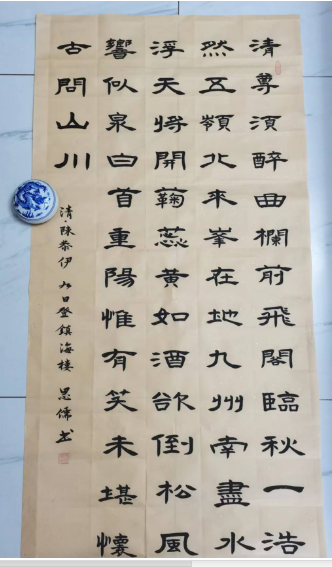 清尊須醉曲欄前飛閣臨秋一浩
然五嶺北來峯在地九州南盡水
浮天將開鞠蕊黃如酒欲倒松風
響似泉白首重陽惟有笑未堪懷
古問山川
清·陳恭伊 九日登鎮海樓 思儒书